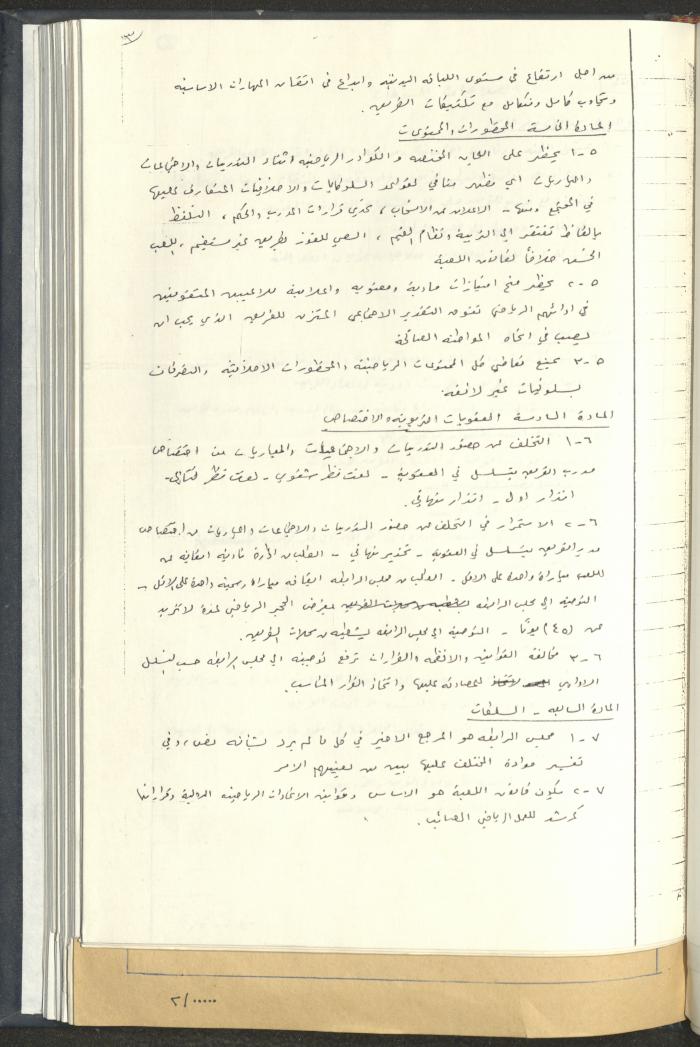 ٣
من اجل ارتفاع في مستوى اللياقه البدنيه وابداع في اتقان المهارات الاساسيه
وتجاوب كامل ومتكامل مع تكتيكات الفريق .
المادة الخامسة المحظورات والممنوعات
٥-١ يحظر على اللجان المختصه والكوادر الرياضيه اثناء التدريبات والاجتماعات
والمباريات اي مظهر منافي لقواعد السلوكيات والاخلاقيات المتعارف عليها
في المجتمع ومنها - الاعلان عن الانسحاب ، تحدي قرارات المدرب والحكم ، التلفظ
بالفاظ تفتقر الى التربية ونظام القيم ، السعي للفوز بطريق غير مستقيم ، اللعب
الخشن خلافاً لقانون اللعبة
٥-٢ يحظر منح امتيازات مادية ومعنويه واعلامية للاعبين المتفوقين
في ادائهم الرياضي تفوق التقدير الاجتماعي المتزن للفريق الذي يجب ان
يصب في اتجاه المواطنة الصالحة
٥-٣ يمنع تعاطي كل الممنوعات الرياضية والمحظورات الاخلاقية والتصرفات
بسلوكيات غير لائقه .
المادة السادسة العقوبات التربويه والاختصاص
٦-١ التخلف عن حضور التدريبات والاجتماعيات والمباريات من اختصاص
مدرب الفريق بتسلسل في العقوبة - لفت نظر شفوي - لفت نظر كتابي -
انذار اول - انذار نهائي .
٦-٢ الاستمرار في التخلف عن حضور التدريبات والاجتماعات والمباريات من اختصاص
مدير الفريق بتسلسل في العقوبه - تحذير نهائي - الطلب من ادارة ناديه ايقافه عن
اللعب مباراة واحدة على الاقل - الطلب من مجلس الرابطه ايقافه مباراة رسمية واحدة على الاقل -
التوصية الى مجلس الرابطه بشطبه من سجلات الفريق بفرض الحجر الرياضي لمدة لا تزيد
عن (٤٥) يومًا - التوصية الى مجلس الرابطه بشطبه من سجلات الفريق .
٦-٣ مخالفة القوانين والانظمه والقرارات ترفع توصية الى مجلس الرابطه حسب التسلسل
الاداري للمصادقه عليها واتخاذ القرار المناسب .
المادة السابعه - السلطات
٧-١ مجلس الرابطه هو المرجع الاخير في كل ما لم يرد بشأنه نص ، وفي
تفسير مواده المختلف عليها بين من يعنيهم الامر
٧-٢ يكون قانون اللعبة هو الاساس وقوانين الاتحادات الرياضيه الدولية وقراراتها
كمرشد للعمل الرياضي الصائب .
٢/٠٠٠٠٠